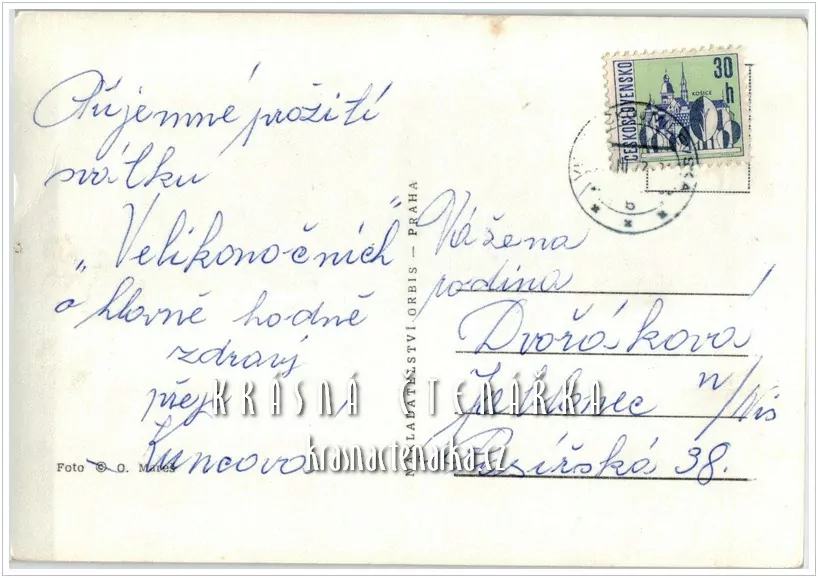 Příjemné prožití
svátku
„Velikonočních"
a hlavně hodně
zdraví
přejí
Kuncova
Foto © O. Mareš
NAKLADATELSTVÍ ORBIS — PRAHA
ČESKOSLOVENSKO
30
h
KOŠICE
Vážena
rodina
Dvořákova
Jablonec n/Nis
38.
KRÁSNÁ ČTENÁŘKA
krasnactenarka.cz